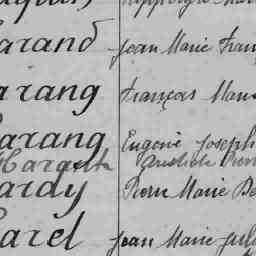 arand Jean Marie Fran
arang François Marie
arang Eugène Joseph
Harath Aristide
ardy Pierre Marie
arel Jean Marie Jul